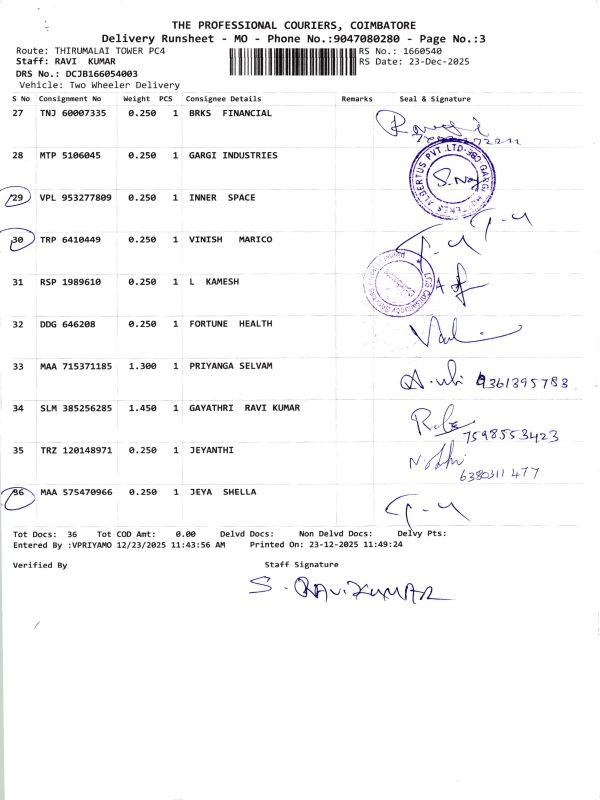 THE PROFESSIONAL COURIERS, COIMBATORE
Delivery Runsheet - MO - Phone No.:9047080280 - Page No.:3
Route: THIRUMALAI TOWER PC4 RS No.: 1660540
Staff: RAVI KUMAR RS Date: 23-Dec-2025
DRS No.: DCJB166054003
Vehicle: Two Wheeler Delivery
S No Consignment No Weight PCS Consignee Details Remarks Seal & Signature
27 TNJ 60007335 0.250 1 BRKS FINANCIAL
28 MTP 5106045 0.250 1 GARGI INDUSTRIES
29 VPL 953277809 0.250 1 INNER SPACE
30 TRP 6410449 0.250 1 VINISH MARICO
31 RSP 1989610 0.250 1 L KAMESH
32 DDG 646208 0.250 1 FORTUNE HEALTH
33 MAA 715371185 1.300 1 PRIYANGA SELVAM 9361395783
34 SLM 385256285 1.450 1 GAYATHRI RAVI KUMAR 7598553423
35 TRZ 120148971 0.250 1 JEYANTHI 6380311477
36 MAA 575470966 0.250 1 JEYA SHELLA
Tot Docs: 36 Tot COD Amt: 0.00 Delvd Docs: Non Delvd Docs: Delvy Pts:
Entered By :VPRIYAMO 12/23/2025 11:43:56 AM Printed On: 23-12-2025 11:49:24
Verified By Staff Signature
S. RAVIKUMAR